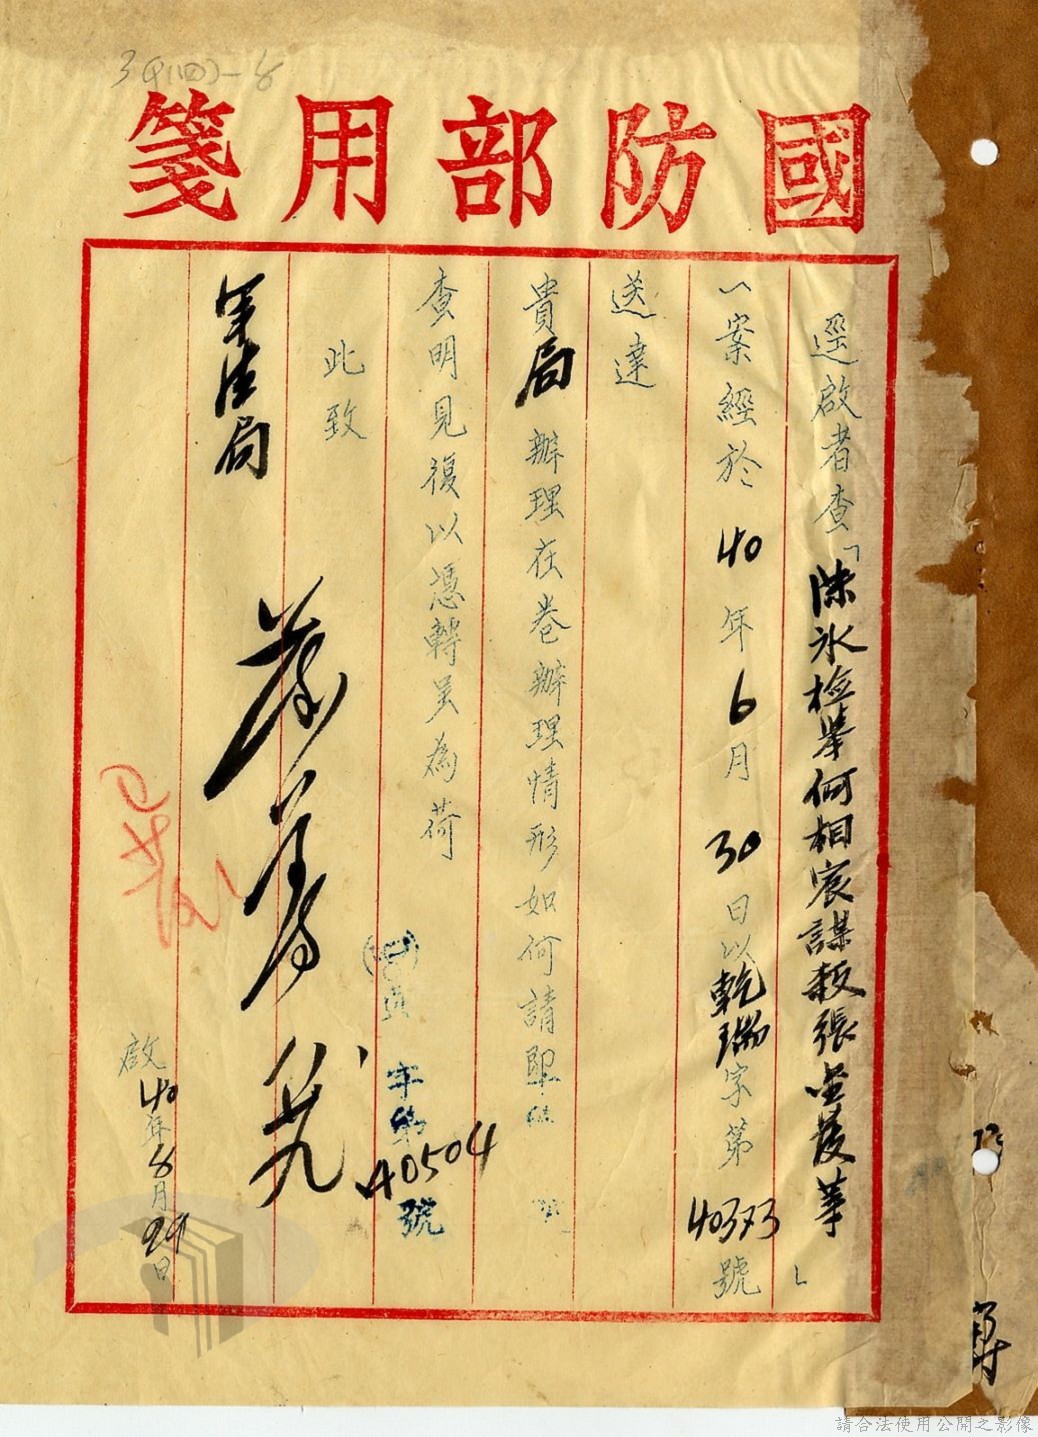 39(四)-8
國防部用箋
逕啟者查「陳冰檢舉何相宸謀叛張
」
一案經於40年6月30日以乾瑞字第40373號
送達
貴局辦理在卷辦理情形如何請即
查明見復以憑轉呈為荷
此致
字第40504號
軍法局
啟40年8月29日
請合法使用公開之影像